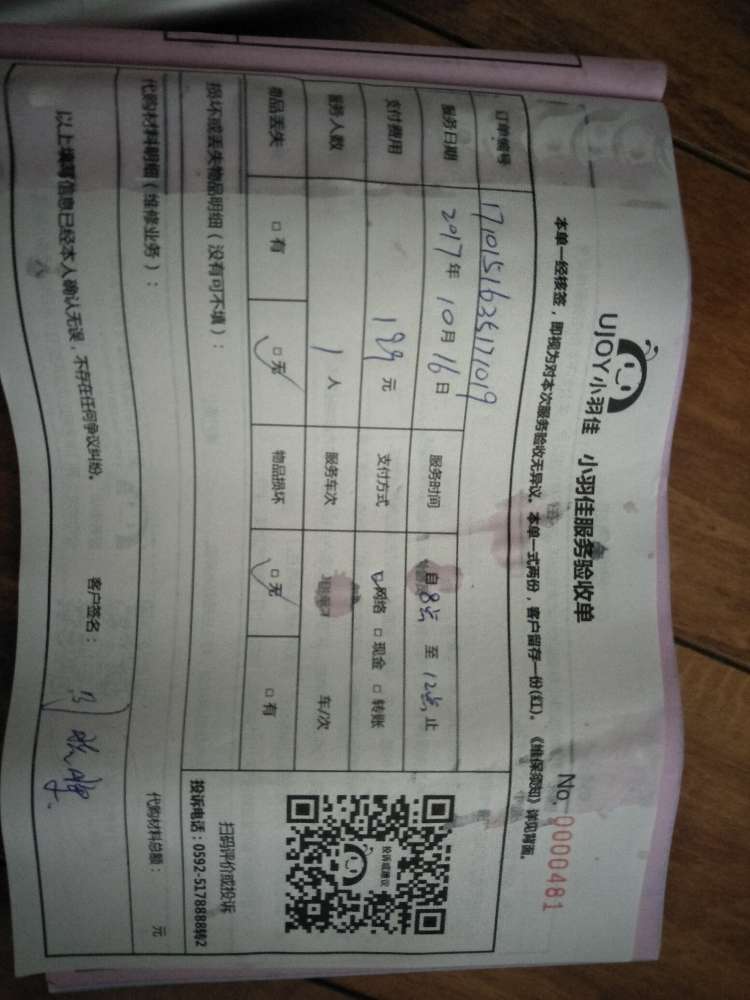 UJOY小羽佳 小羽佳服务验收单
No. 0000481
本单一经核签，即视为对本次服务验收无异议。本单一式两份，客户留存一份(红)。《维保须知》详见背面。
订单编号 171015163517019
服务日期 2017年10月16日 服务时间 自8点至12点止
支付费用 199元 支付方式 □网络 □现金 □转账
服务人数 1人 服务车次 车/次
物品丢失 □有 □无 物品损坏 □无 □有
损坏或丢失物品明细（没有可不填）：
代购材料明细（维修业务）： 代购材料总额： 元
以上填写信息已经本人确认无误，不存在任何争议纠纷。 客户签名：
投诉或建议
扫码评价或投诉
投诉电话：0592-5178888转2